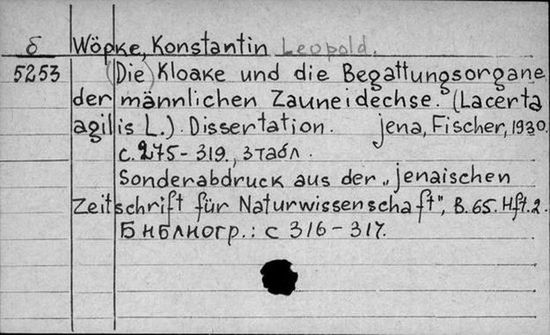 δ Wöpke, Konstantin Leopold.
5253 (Die) Kloake und die Begattungsorgane
der männlichen Zauneidechse. (Lacerta
agilis L.). Dissertation. Jena, Fischer, 1930.
с. 275-319., 3 табл.
Sonderabdruck aus der „jenaischen
Zeitschrift für Naturwissenschaft", B. 65. Hft. 2.
Библиогр.: с 316-317.